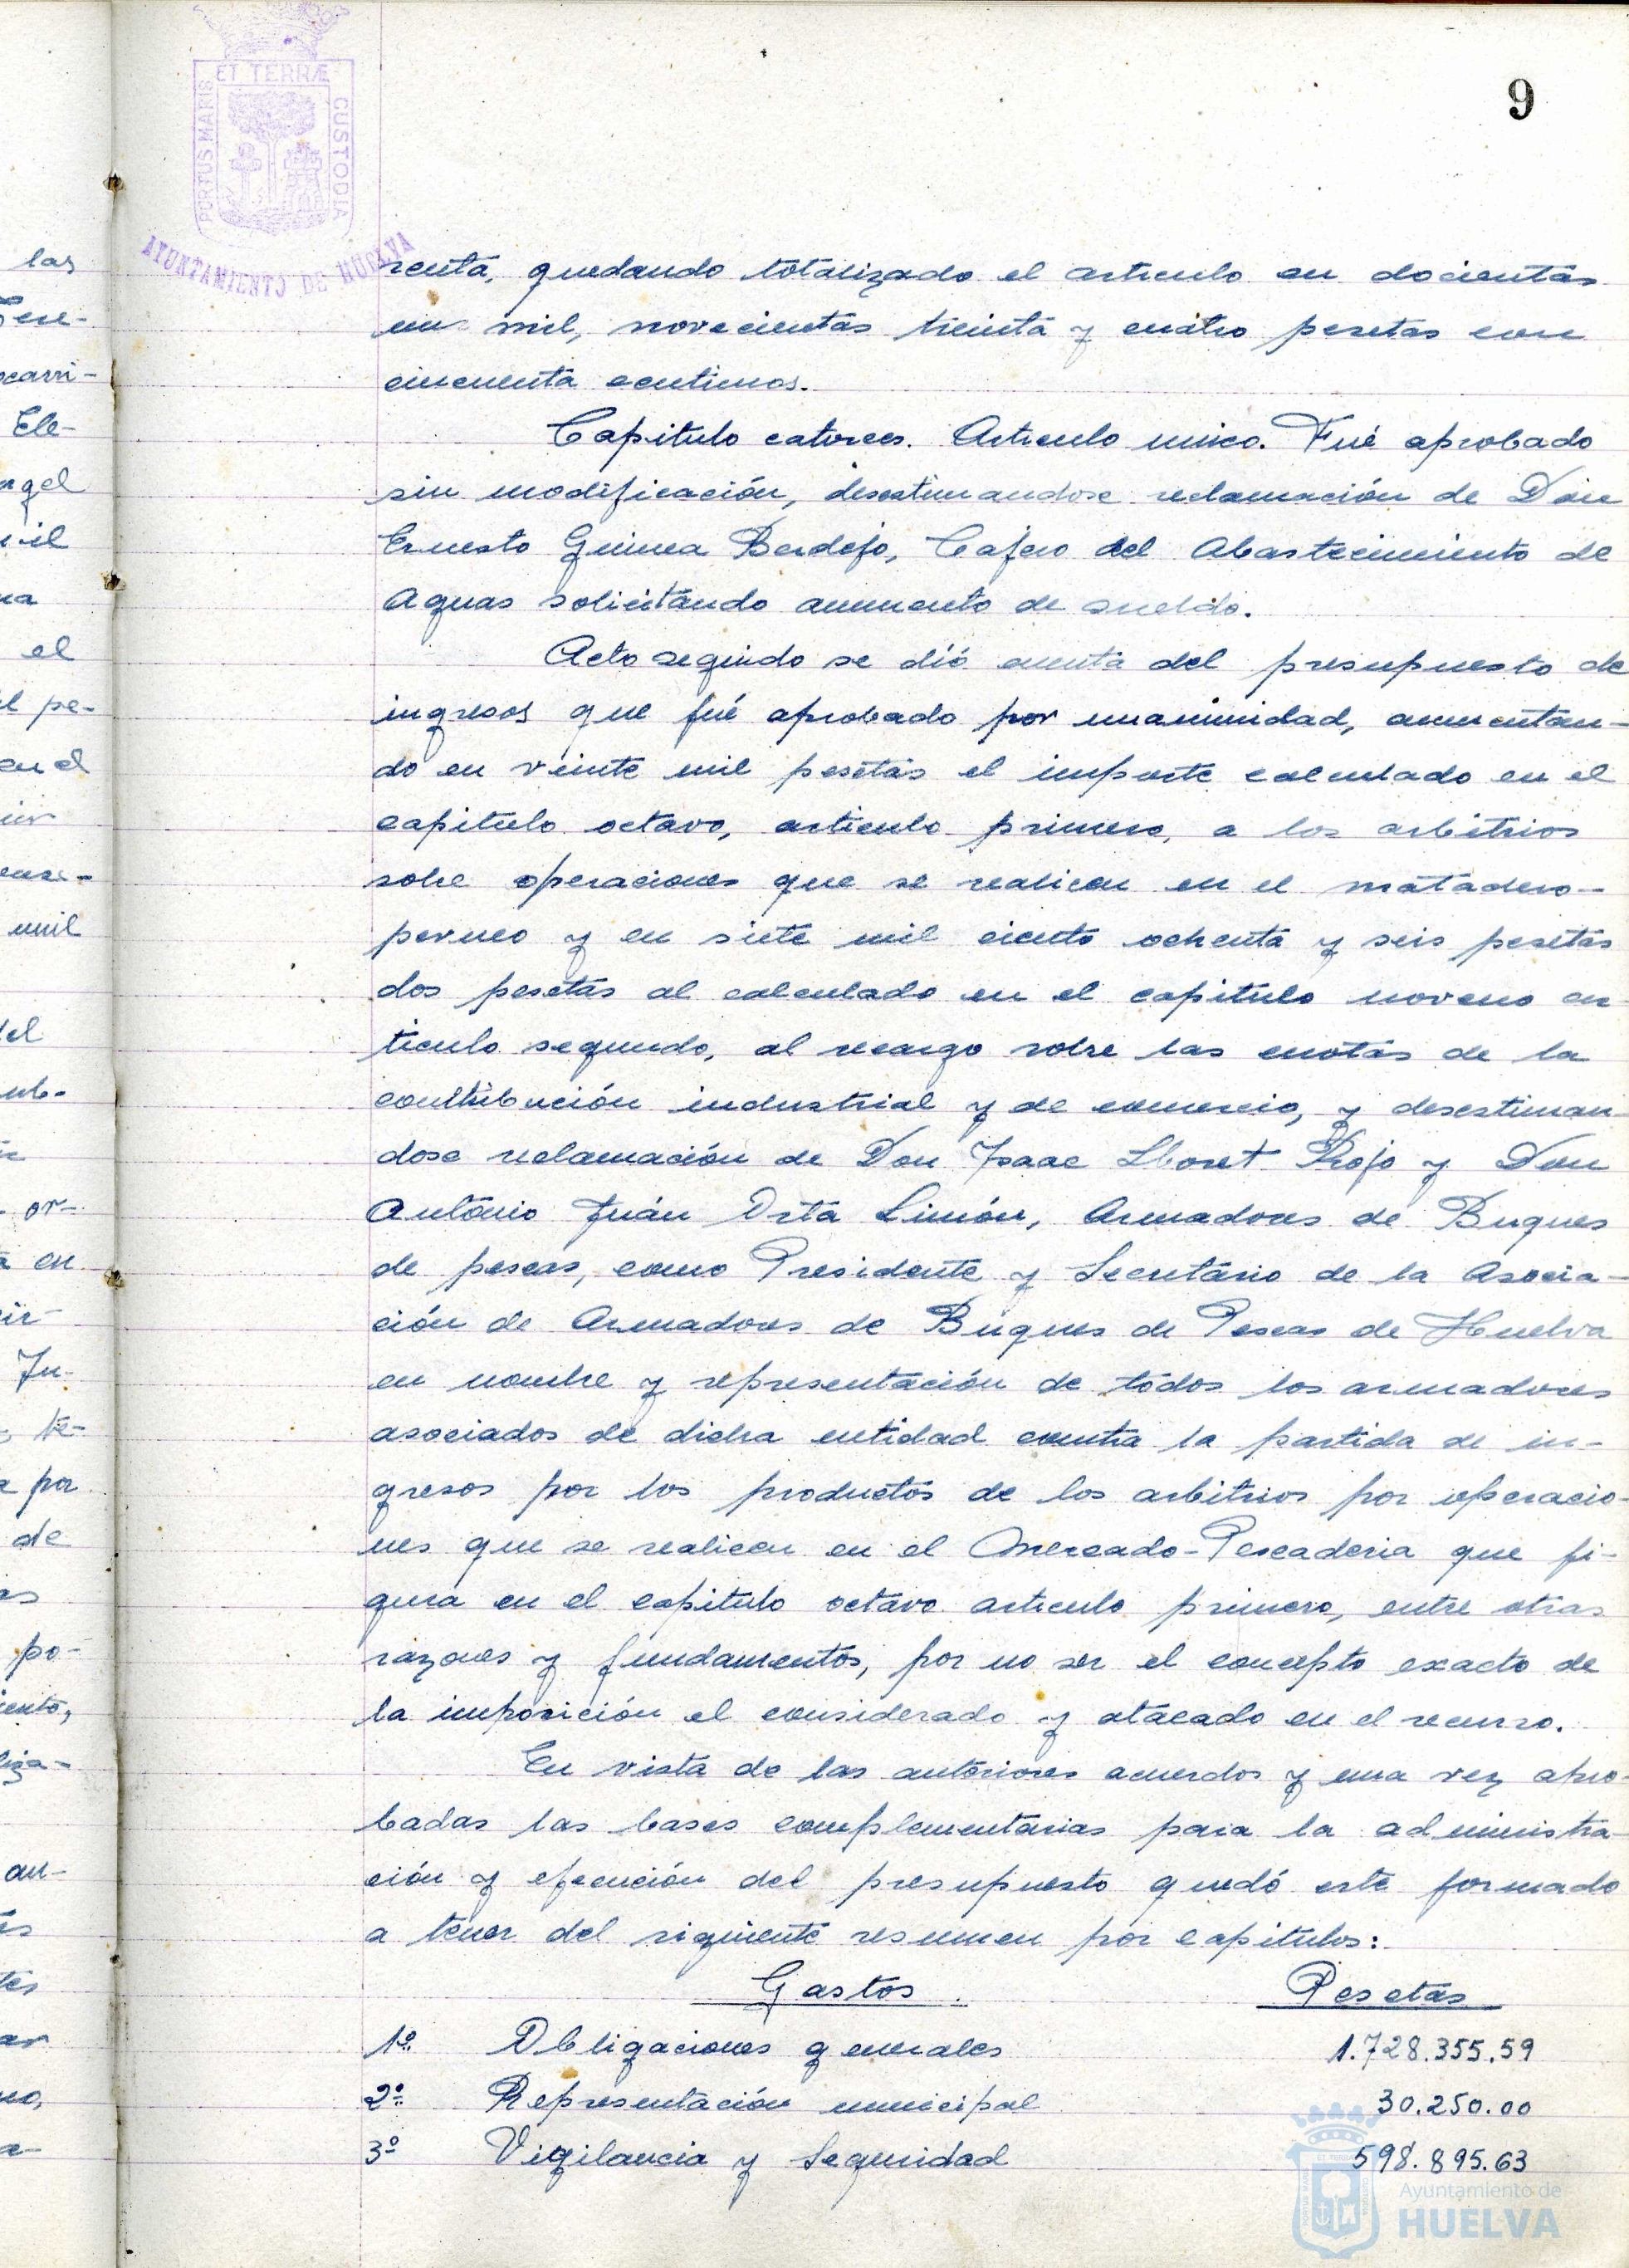 9
ET TERRÆ
PORTUS MARIS
CUSTODIA
AYUNTAMIENTO DE HUELVA
renta, quedando totalizado el articulo en docientas
un mil, novecientas treinta y cuatro pesetas con
cincuenta centimos.
Capitulo catorces. Articulo unico. Fué aprobado
sin modificación, desestimandose reclamación de Don
Ernesto Guinea Berdejo, Cajero del Abastecimiento de
Aguas solicitando aumento de sueldo.
Acto seguido se dió cuenta del presupuesto de
ingresos que fué aprobado por unanimidad, aumentan-
do en veinte mil pesetas el importe calculado en el
capitulo octavo, articulo primero, a los arbitrios
sobre operaciones que se realicen en el matadero-
perneo y en siete mil ciento ochenta y seis pesetas
dos pesetas al calculado en el capitulo noveno ar-
ticulo segundo, al recargo sobre las cuotas de la
contribución industrial y de comercio, y desestiman
dose reclamación de Don Isaac Lloret Rojo y Don
Antonio Juán Orta Limón, Armadores de Buques
de pescas, como Presidente y Secretario de la Asocia-
ción de Armadores de Buques de Pescas de Huelva
en nombre y representación de todos los armadores
asociados de dicha entidad contra la partida de in-
gresos por los productos de los arbitrios por operacio-
nes que se realicen en el Mercado-Pescaderia que fi-
gura en el capitulo octavo articulo primero, entre otras
razones y fundamentos, por no ser el concepto exacto de
la imposición el considerado y atacado en el recurso.
En vista de las anteriores acuerdos y una vez apro-
badas las bases complementarias para la administra-
ción y ejecución del presupuesto quedó este formado
a tenor del siguiente resumen por capitulos:
Gastos. Pesetas
1º Obligaciones generales 1.728.355.59
2º Representación municipal 30.250.00
3º Vigilancia y Seguridad 598.895.63
Ayuntamiento de
HUELVA